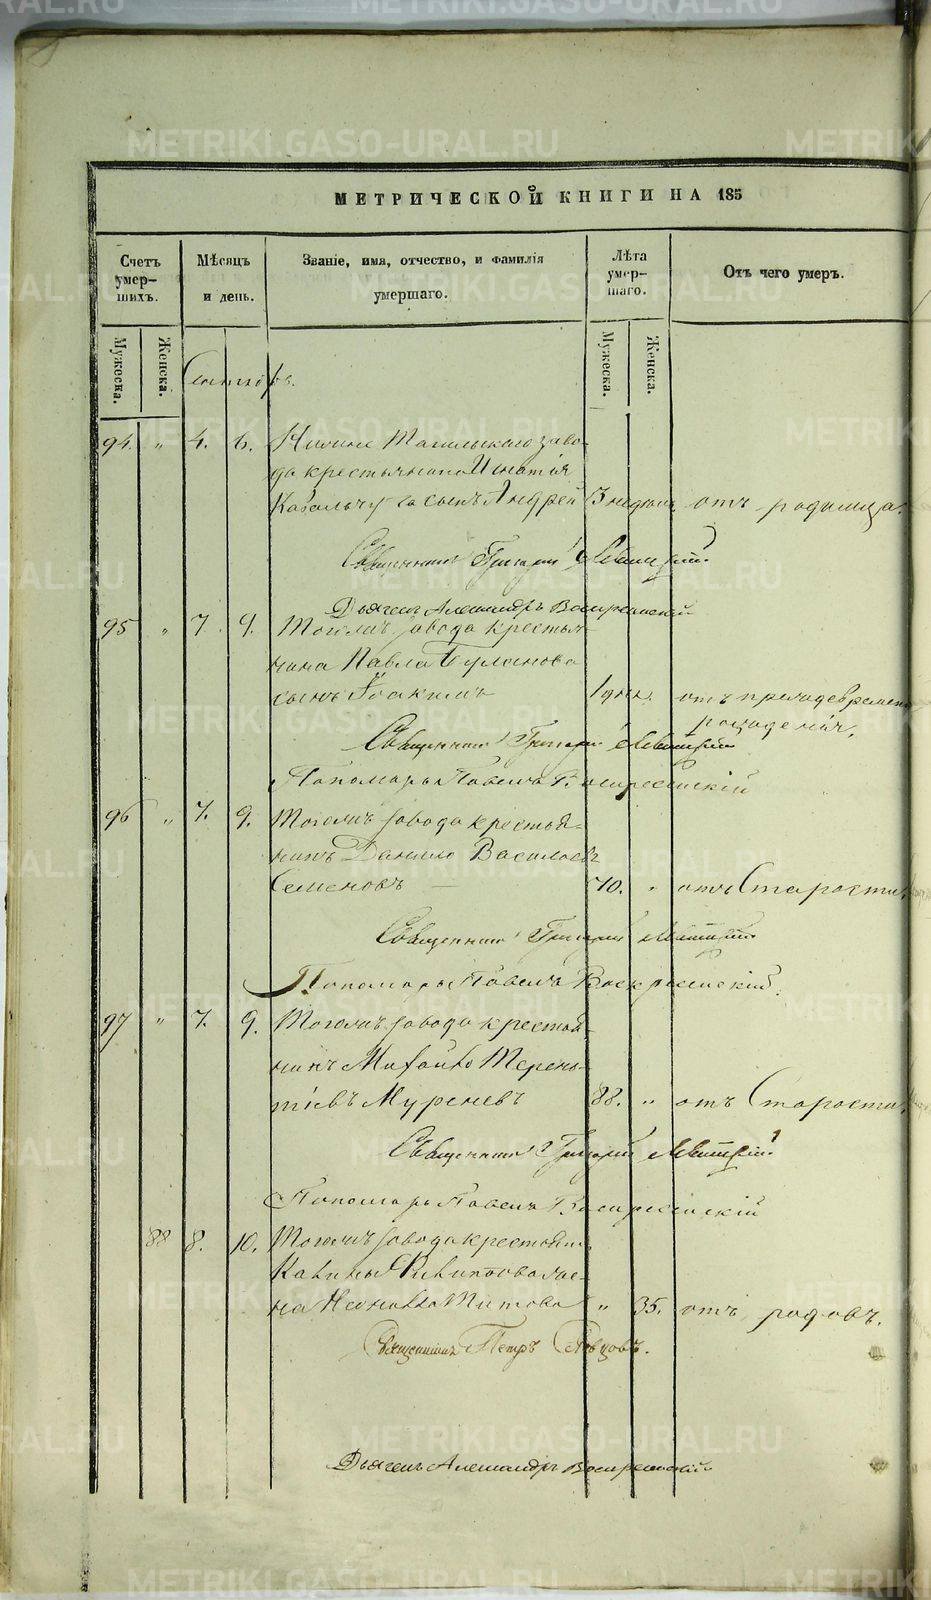 МЕТРИЧЕСКОЙ КНИГИ НА 185
Счетъ умер-шихъ.
Мѣсяцъ и день.
Званіе, имя, отчество, и фамилія умершаго.
Лѣта умер-шаго.
Отъ чего умеръ.
Мужеска.
Женска.
Мужеска.
Женска.
Сентябрь.
94. " 4. 6. Нижне Тагильскаго заво-
да крестьянина Игнатія
сынъ Андрей 3 недѣль отъ родимца.
Священникъ Григорій
Дьячекъ Александръ Воскресенскій
95 " 7. 9. Тогожъ завода крестья-
нина Павла Буланова
сынъ Іоакимъ 1 дня. отъ преждевремен
рожденія.
Священникъ Григорій
Пономарь Павелъ Воскресенскій
96 " 7. 9. Тогожъ завода крестья-
нинъ Данило Васильевъ
Семеновъ 70. " отъ Старости.
Священникъ Григорій
Пономарь Павелъ Воскресенскій.
97 " 7. 9. Тогожъ завода крестья-
нинъ Михайло Терень-
тіевъ 88. " отъ Старости.
Священникъ Григорій
Пономарь Павелъ Воскресенскій
88 8. 10. Тогожъ завода крестьян
Филиппова же-
на Титова " 35. отъ родовъ.
Священникъ Петръ
Дьячекъ Александръ Воскресенскій
METRIKI.GASO-URAL.RU